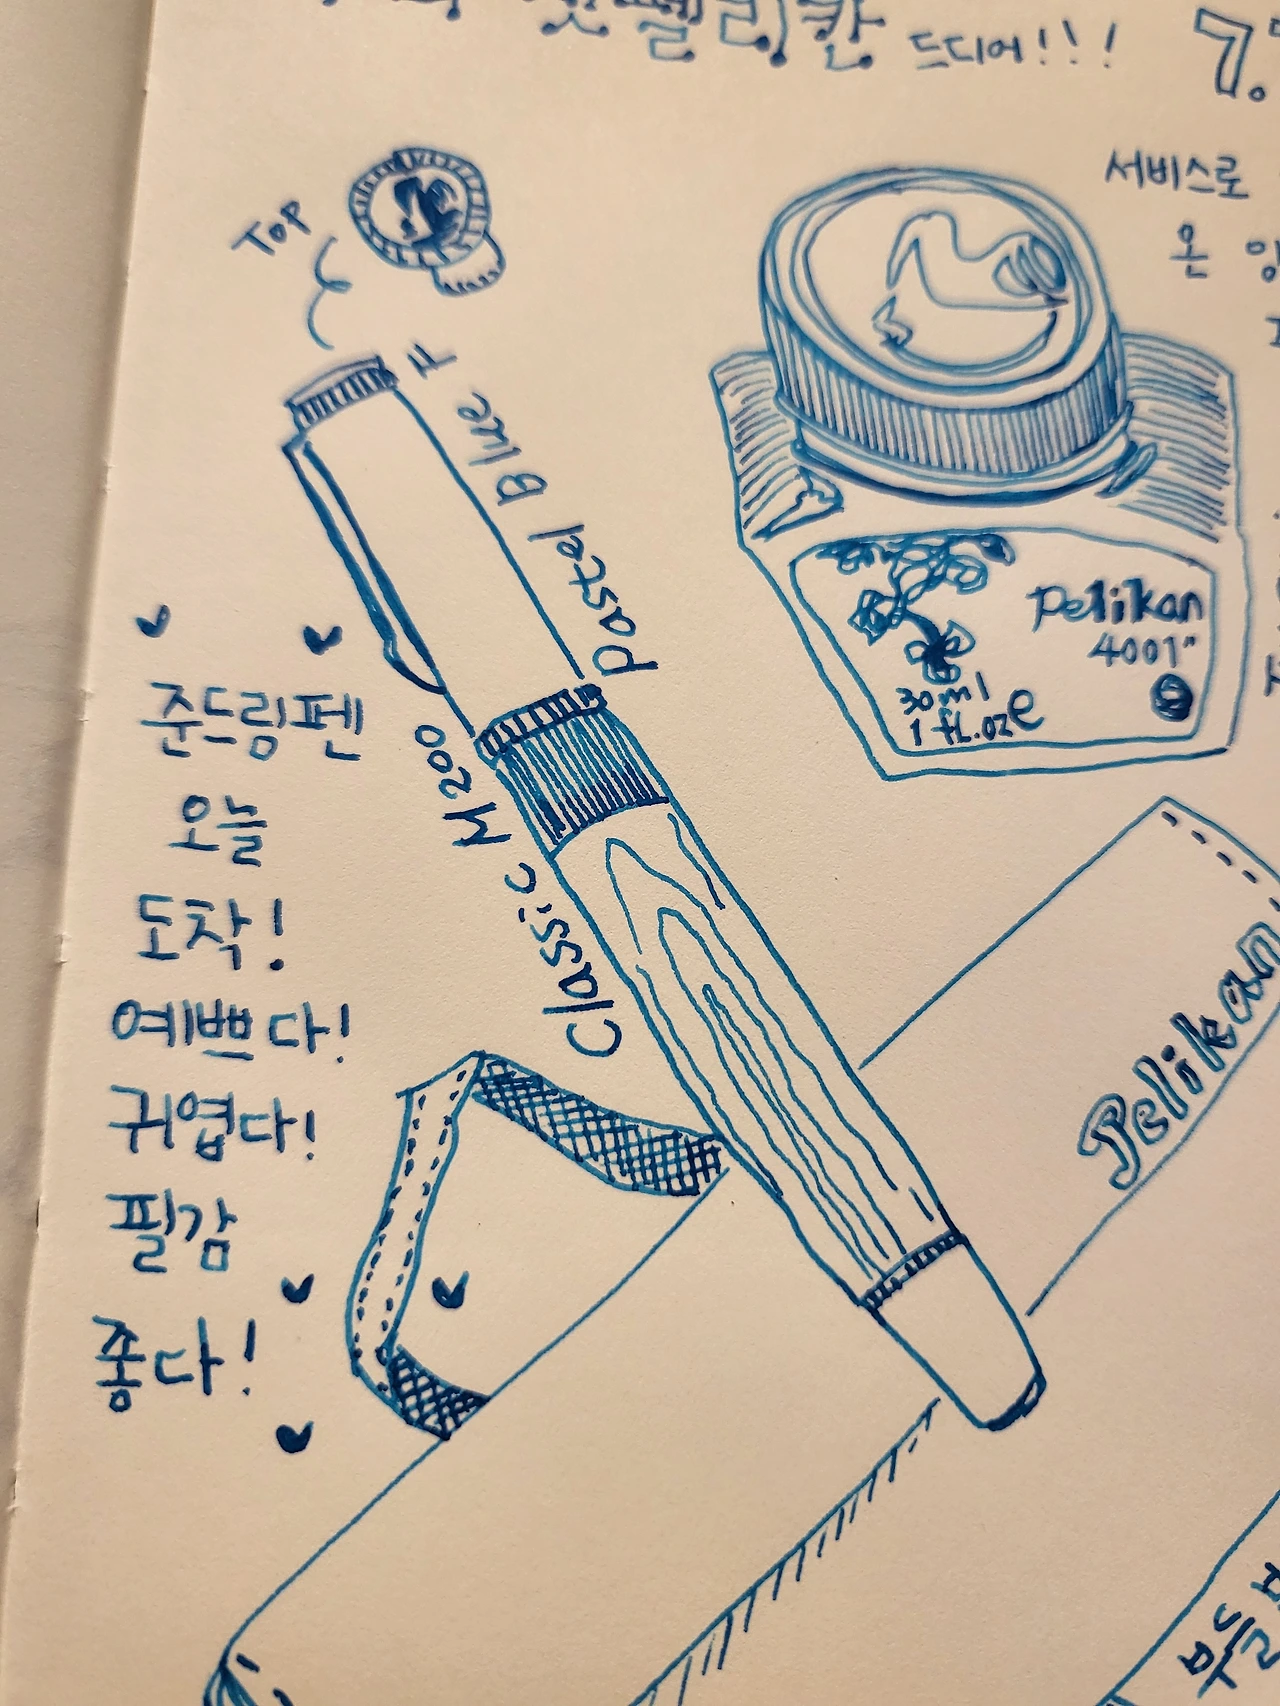 펠리칸 드디어!!!
7.
서비스로
온
TOP
Pastel Blue F
Classic M200
Pelikan
4001"
30ml
1 fl.oz e
준드림펜
오늘
도착!
예쁘다!
귀엽다!
필감
좋다!
Pelikan